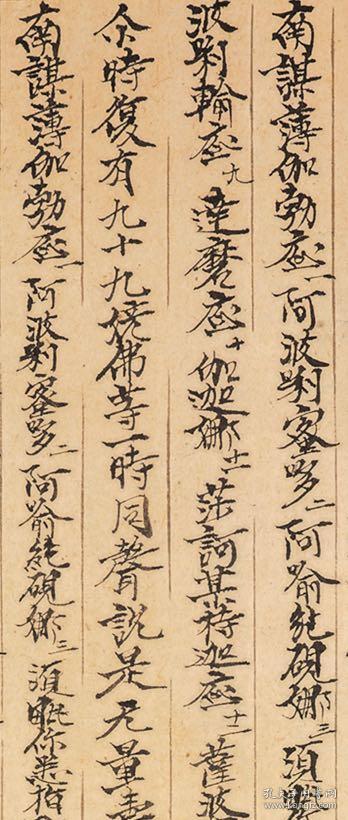 南謨薄伽勃底一阿波唎蜜哆二阿喻紇硯娜三須
波唎輸底九達磨底十伽迦娜十一莎訶其特迦底十二薩婆
尒時復有九十九姟佛等一時同聲說是无量壽
南謨薄伽勃底一阿波唎蜜哆二阿喻紇硯娜三須毗你悉指